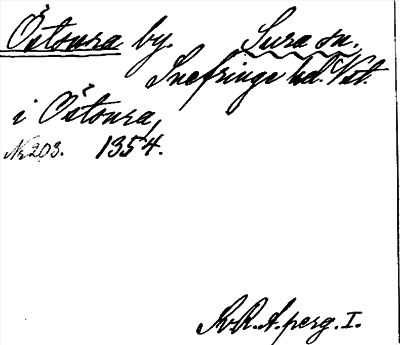 Östsura by. Sura sn.
Snefringe hd. Vstm.
i Östsura,
Nr 203. 1354.
Sv.R.A. perg. I.